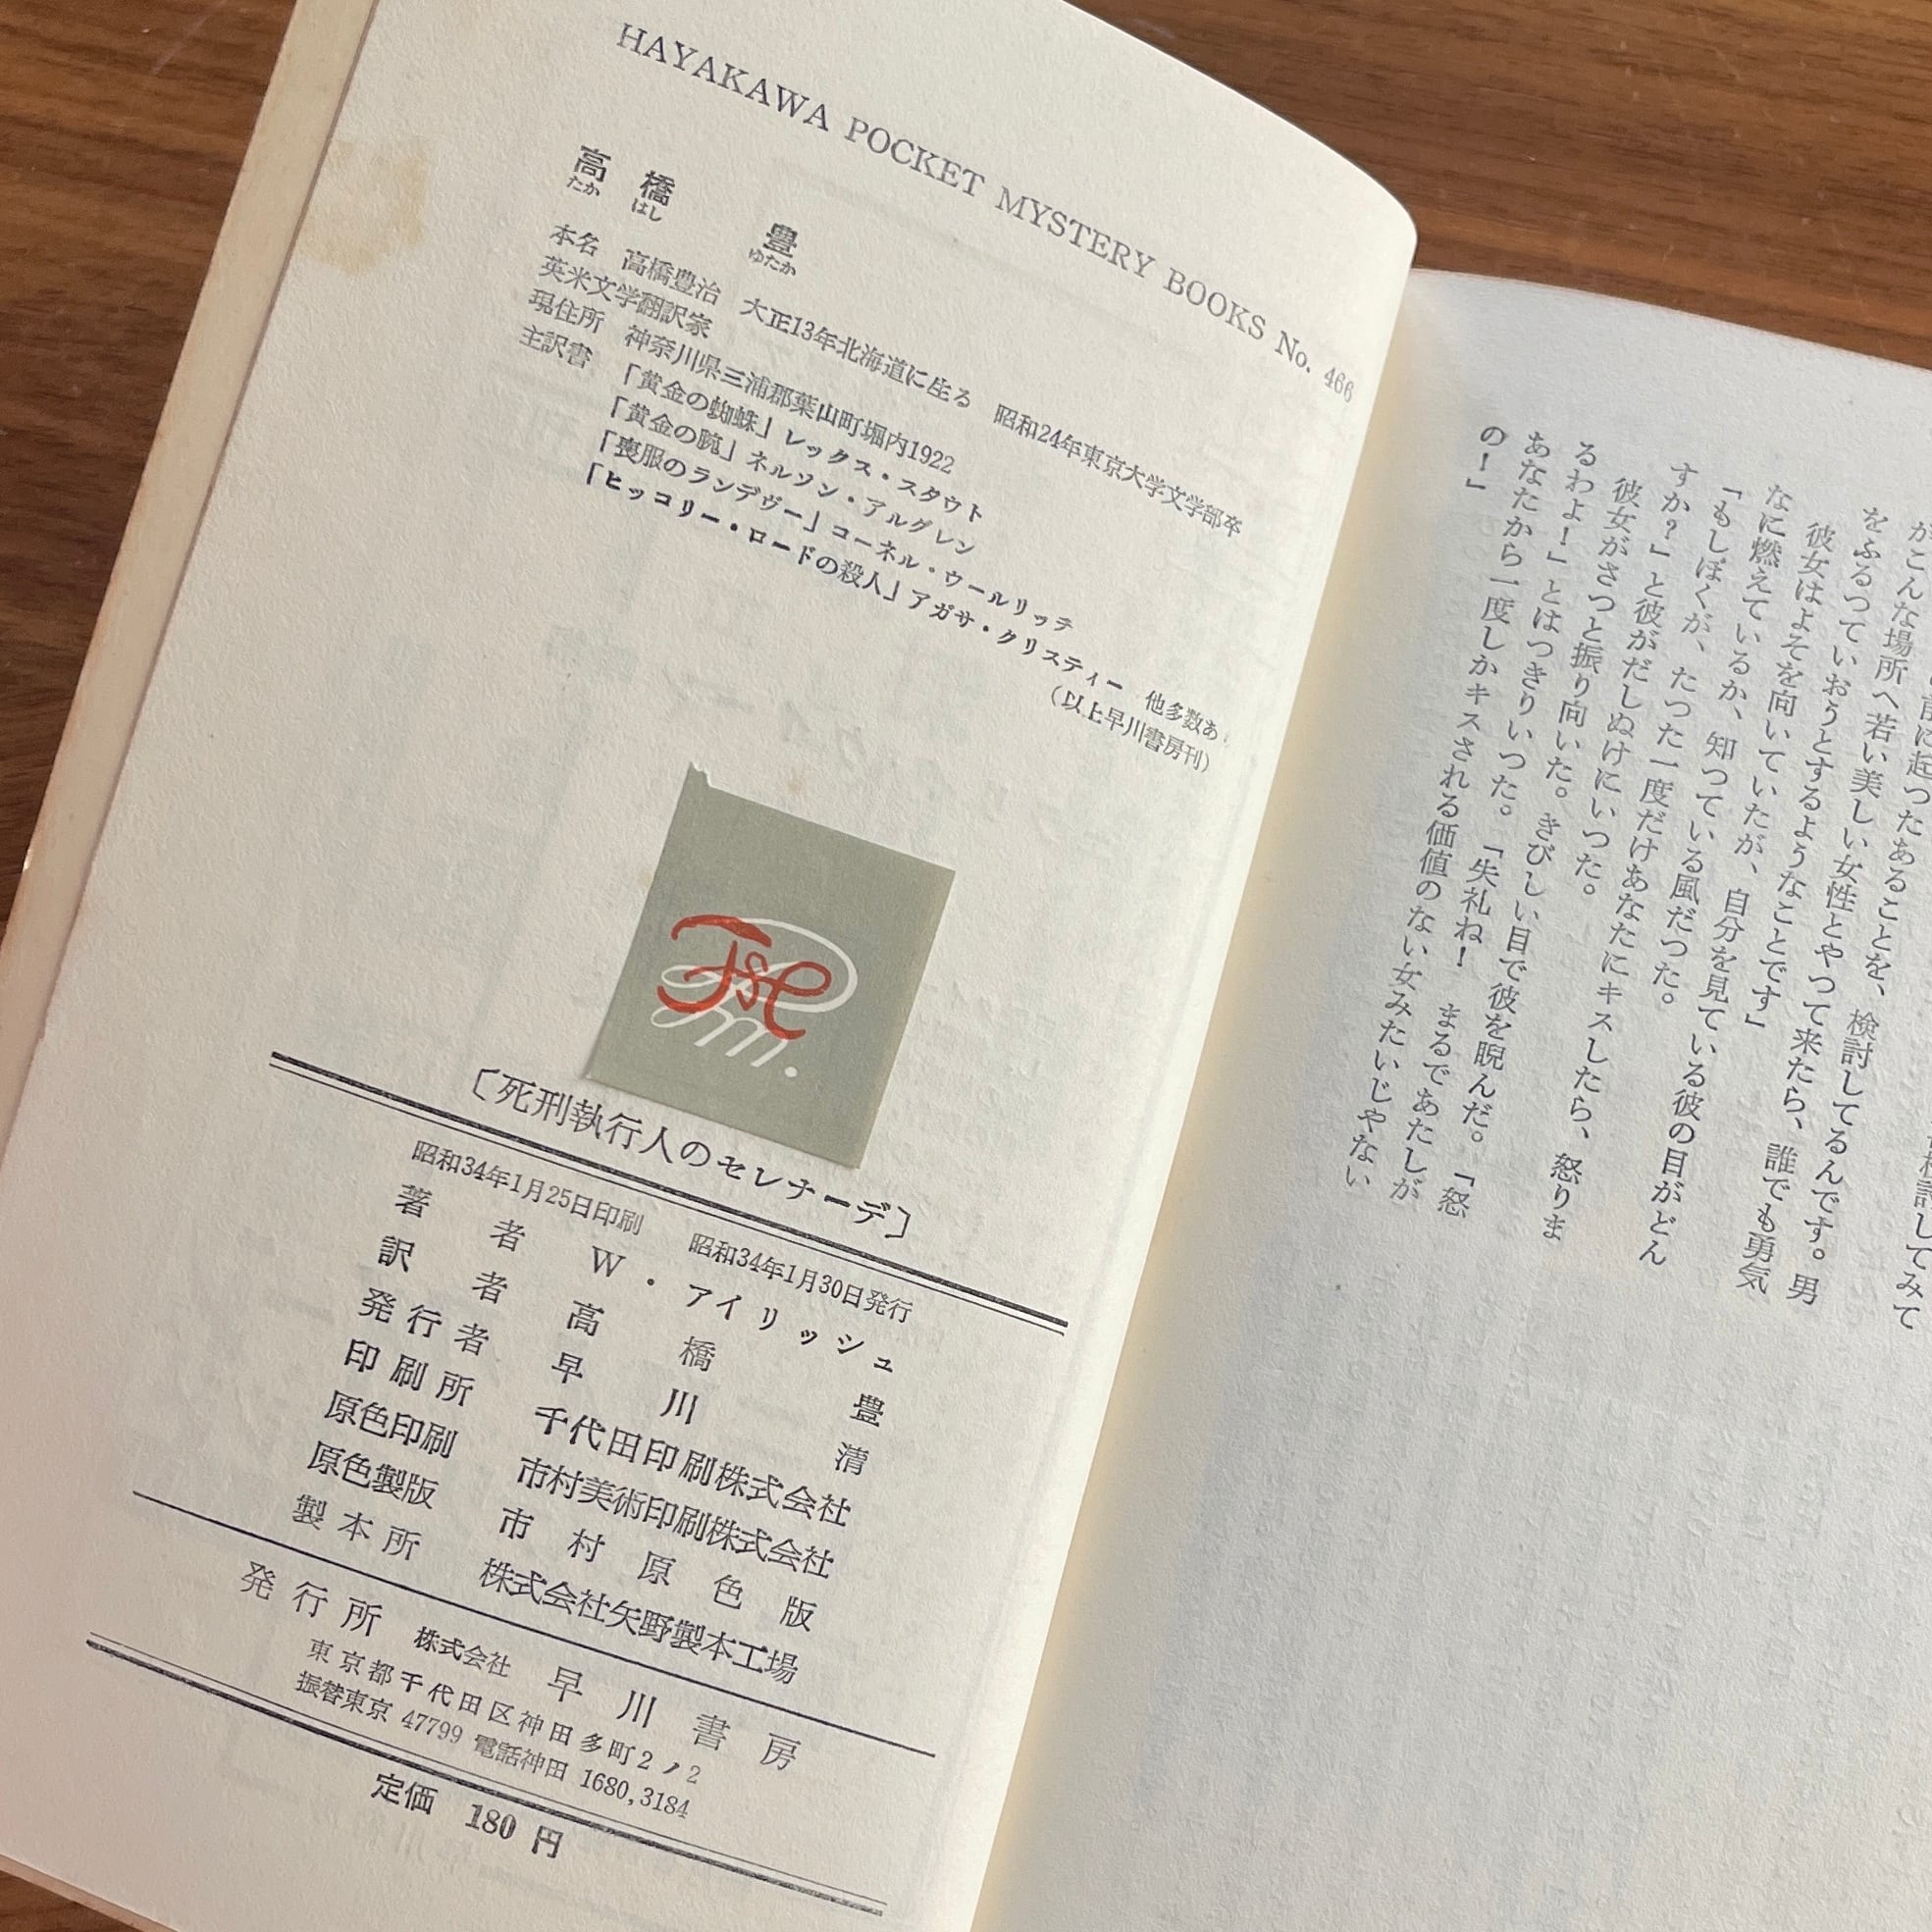 HAYAKAWA POCKET MYSTERY BOOKS No. 466
高橋 豊
たか はし ゆたか
本名 高橋豊治 大正13年北海道に生る 昭和24年東京大学文学部卒
英米文学翻訳家
現住所 神奈川県三浦郡葉山町堀内1922
主訳書 「黄金の蜘蛛」レックス・スタウト
「黄金の腕」ネルソン・アルグレン
「喪服のランデヴー」コーネル・ウールリッチ
「ヒッコリー・ロードの殺人」アガサ・クリスティー 他多数あ
(以上早川書房刊)
〔死刑執行人のセレナーデ〕
昭和34年1月25日印刷 昭和34年1月30日発行
著者 W・アイリッシュ
訳者 高橋豊
発行者 早川清
印刷所 千代田印刷株式会社
原色印刷 市村美術印刷株式会社
原色製版 市村原色版
製本所 株式会社矢野製本工場
発行所 株式会社 早川書房
東京都千代田区神田多町2ノ2
振替東京 47799 電話神田 1680,3184
定価 180 円
がこんな場所へ若い美しい女性とやつて来たら、誰でも勇気
をふるつていおうとするようなことです」
彼女はよそを向いていたが、自分を見ている彼の目がどん
なに燃えているか、知つている風だつた。
「もしぼくが、たつた一度だけあなたにキスしたら、怒りま
すか?」と彼がだしぬけにいつた。
彼女がさつと振り向いた。きびしい目で彼を睨んだ。「怒
るわよ!」とはつきりいつた。「失礼ね! まるであたしが
あなたから一度しかキスされる価値のない女みたいじやない
の!」